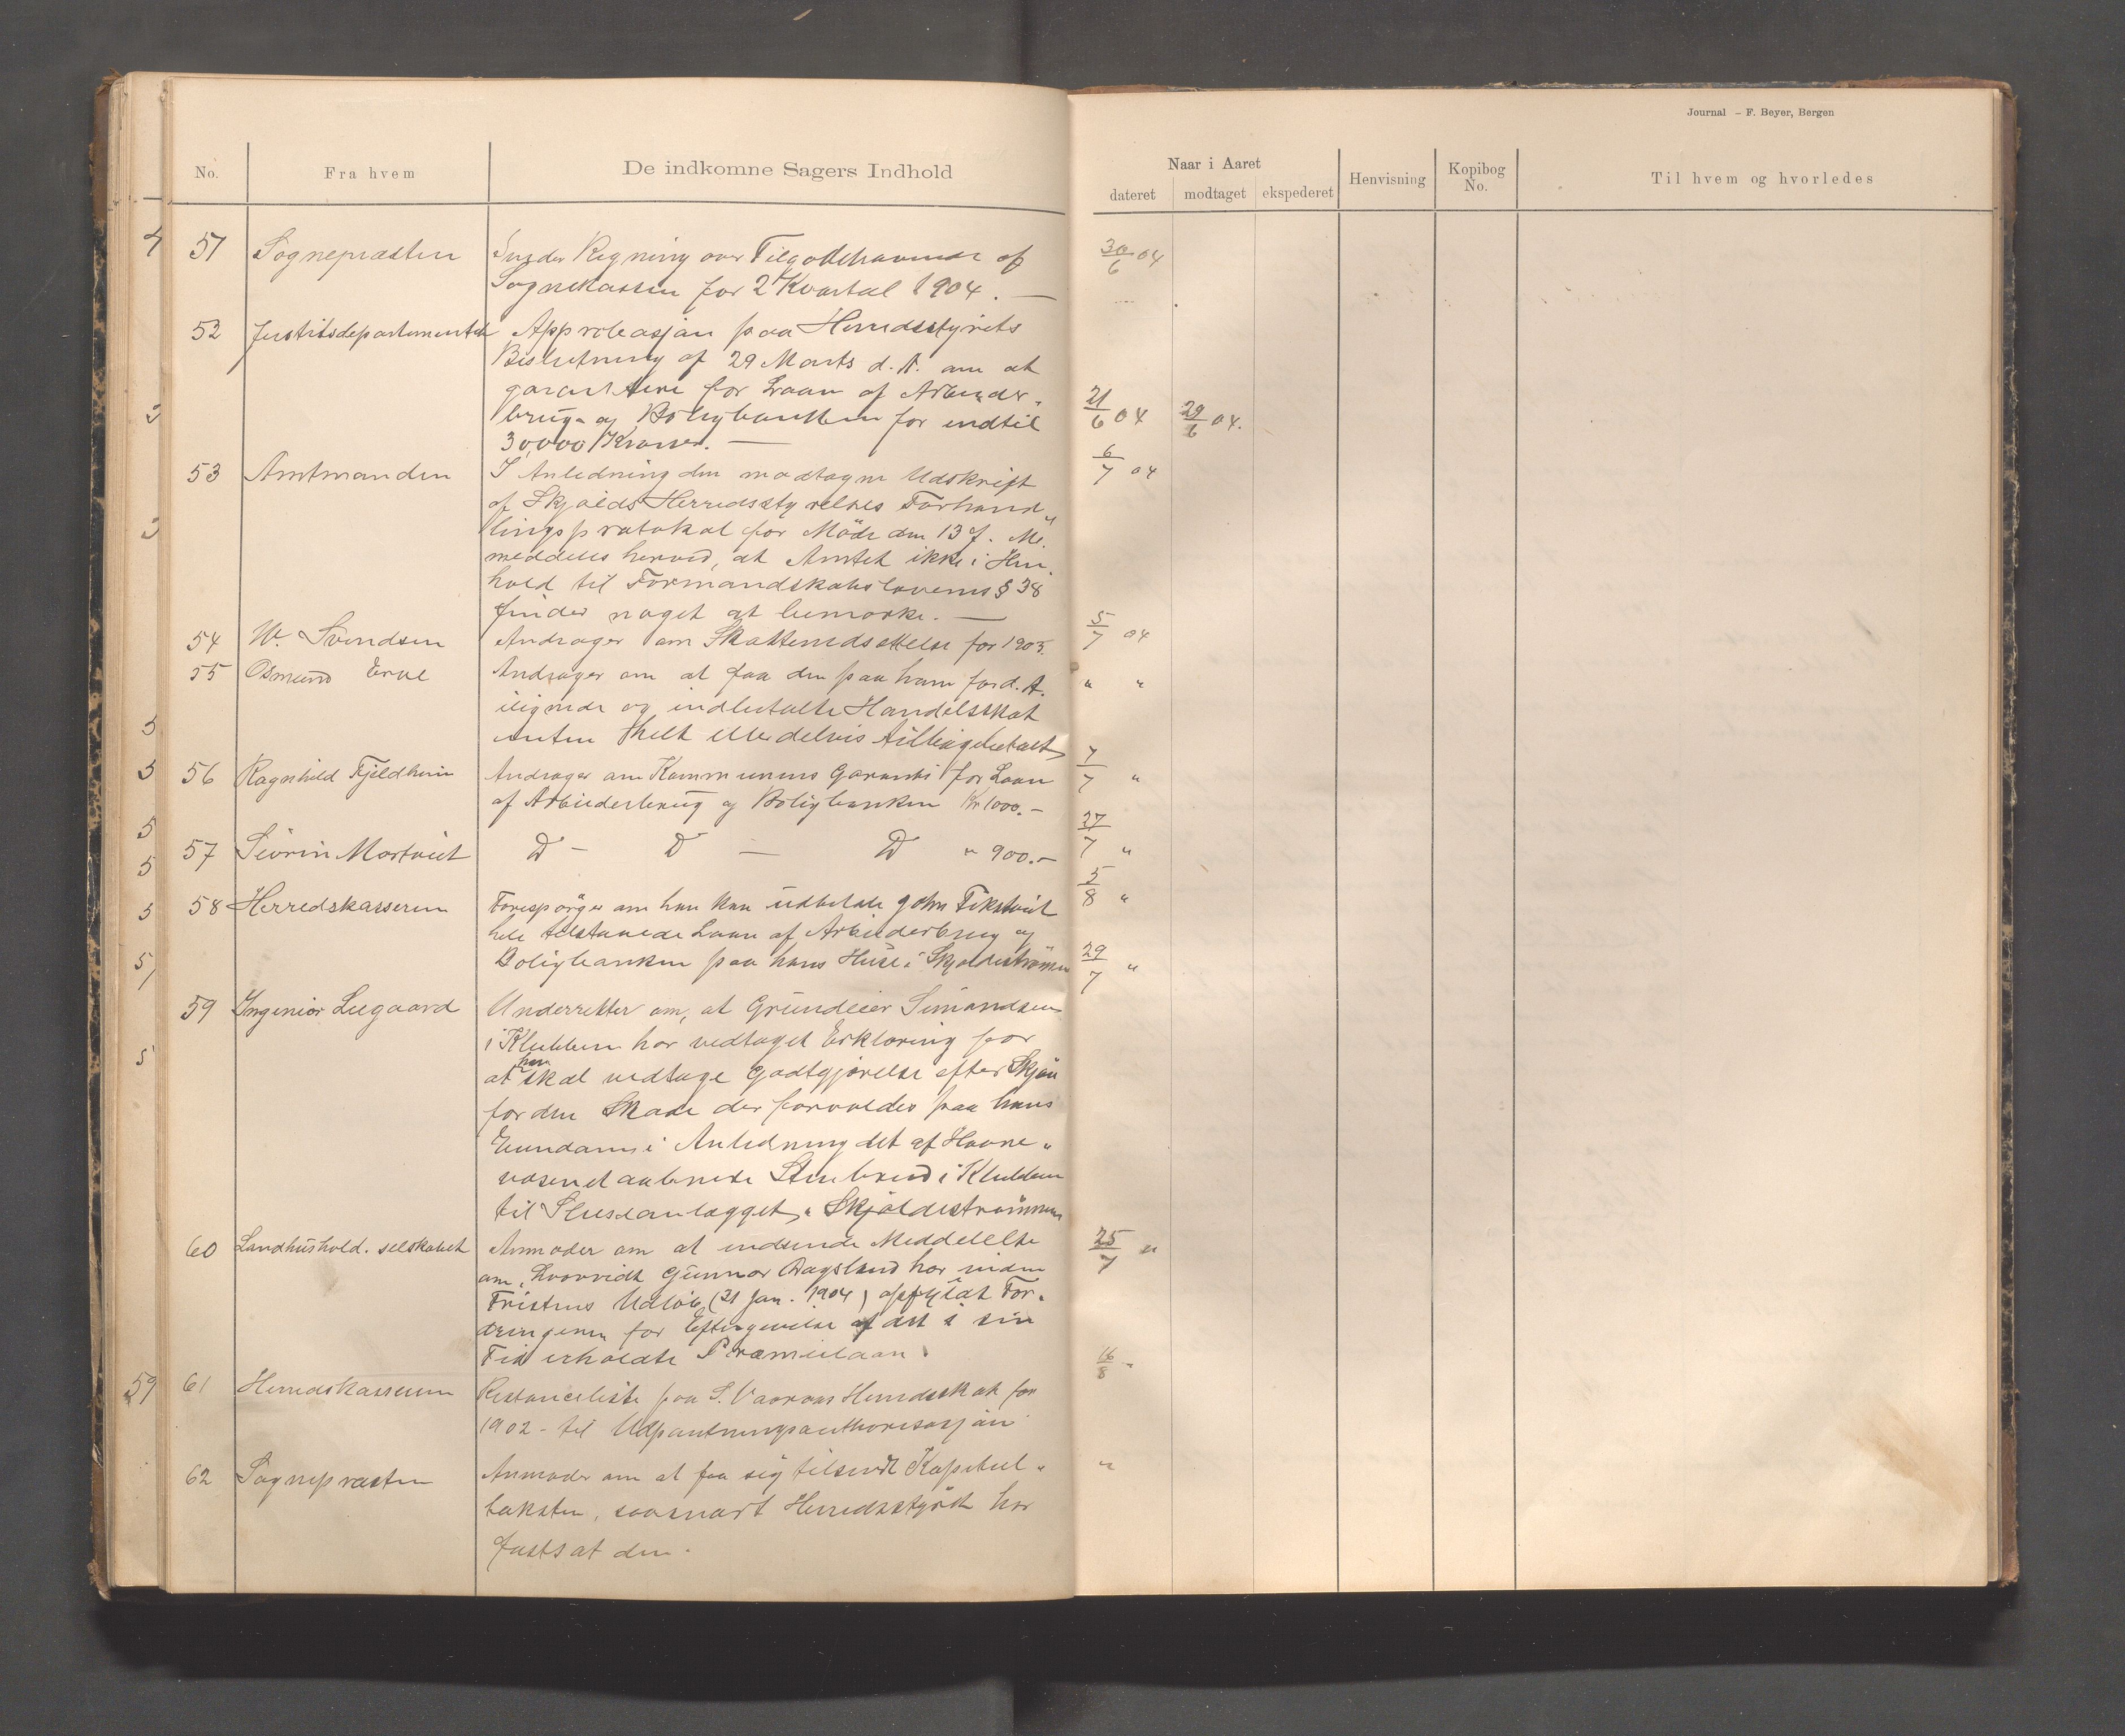 Journal – F. Beyer, Bergen
No. Fra hvem De indkomne Sagers Indhold Naar i Aaret Henvisning Kopibog No. Til hvem og hvorledes
dateret modtaget ekspederet
51 Sognepræsten Sender Regning over Tilgodehavende af 30/6 04
Sognekassen for 2 Kvartal 1904. —
52 Justitsdepartementet Approbasjon paa Herredsstyrets
Beslutning af 29 Marts d. A. om at
garantere for Laan af Arbeider-
brug- og Boligbanken for indtil 21/6 04 29/6 04.
30,000 Kroner. —
53 Amtmanden I Anledning den modtagne Udskrift 6/7 04
af Skjolds Herredsstyrelses Forhand-
lingsprotokol for Møde den 13 f. M.
meddeles herved, at Amtet ikke i Hen-
hold til Formandskabslovens § 38
finder noget at bemærke. —
54 W. Svendsen Andrager om Skattenedsættelse for 1903. 5/7 04
55 Osmund Erve Andrager om at faa den paa ham for d. A. " "
ilignede og indbetalte Handelsskat
enten helt eller delvis tilbagebetalt
56 Ragnhild Fjeldheim Andrager om Kommunens Garanti for Laan 7/7 "
af Arbeiderbrug og Boligbanken Kr 1000.—
57 Sivrin Mortveit D — D — D " 900.— 27/7 "
58 Herredskasseren Forespørger om han kan udbetale John Tekstveit 5/8 "
hele tilstaaede Laan af Arbeiderbrug og
Boligbanken paa hans Huse i Skjoldestrømmen
59 Ingeniør Leegaard Underretter om, at Grundeier Simondsen 29/7 "
i Klubben har vedtaget Erklæring for
at han skal vedtage Godtgjørelse efter Skjøn
for den Skade der forvoldes paa hans
Eiendom i Anledning det af Havne-
væsenet aabnede Stenbrud i Klubben
til Sluseanlægget i Skjoldestrømmen
60 Landhushold. selskabet Anmoder om at indsende Meddelelse 25/7 "
om, hvorvidt Gunnar Dagsland har inden
Fristens Udløb (31 Jan. 1904) opfyldt For-
dringerne for Eftergivelse af det i sin
Tid erholdte Præmielaan.
61 Herredskasseren Restanceliste paa S. Vaarvas Herredsskat for 16/8 "
1902 - til Udpantningsauthorisasjon
62 Sognepræsten Anmoder om at faa sig tilsendt Kapitel- "
taksten, saasnart Herredsstyret har
fastsat den.